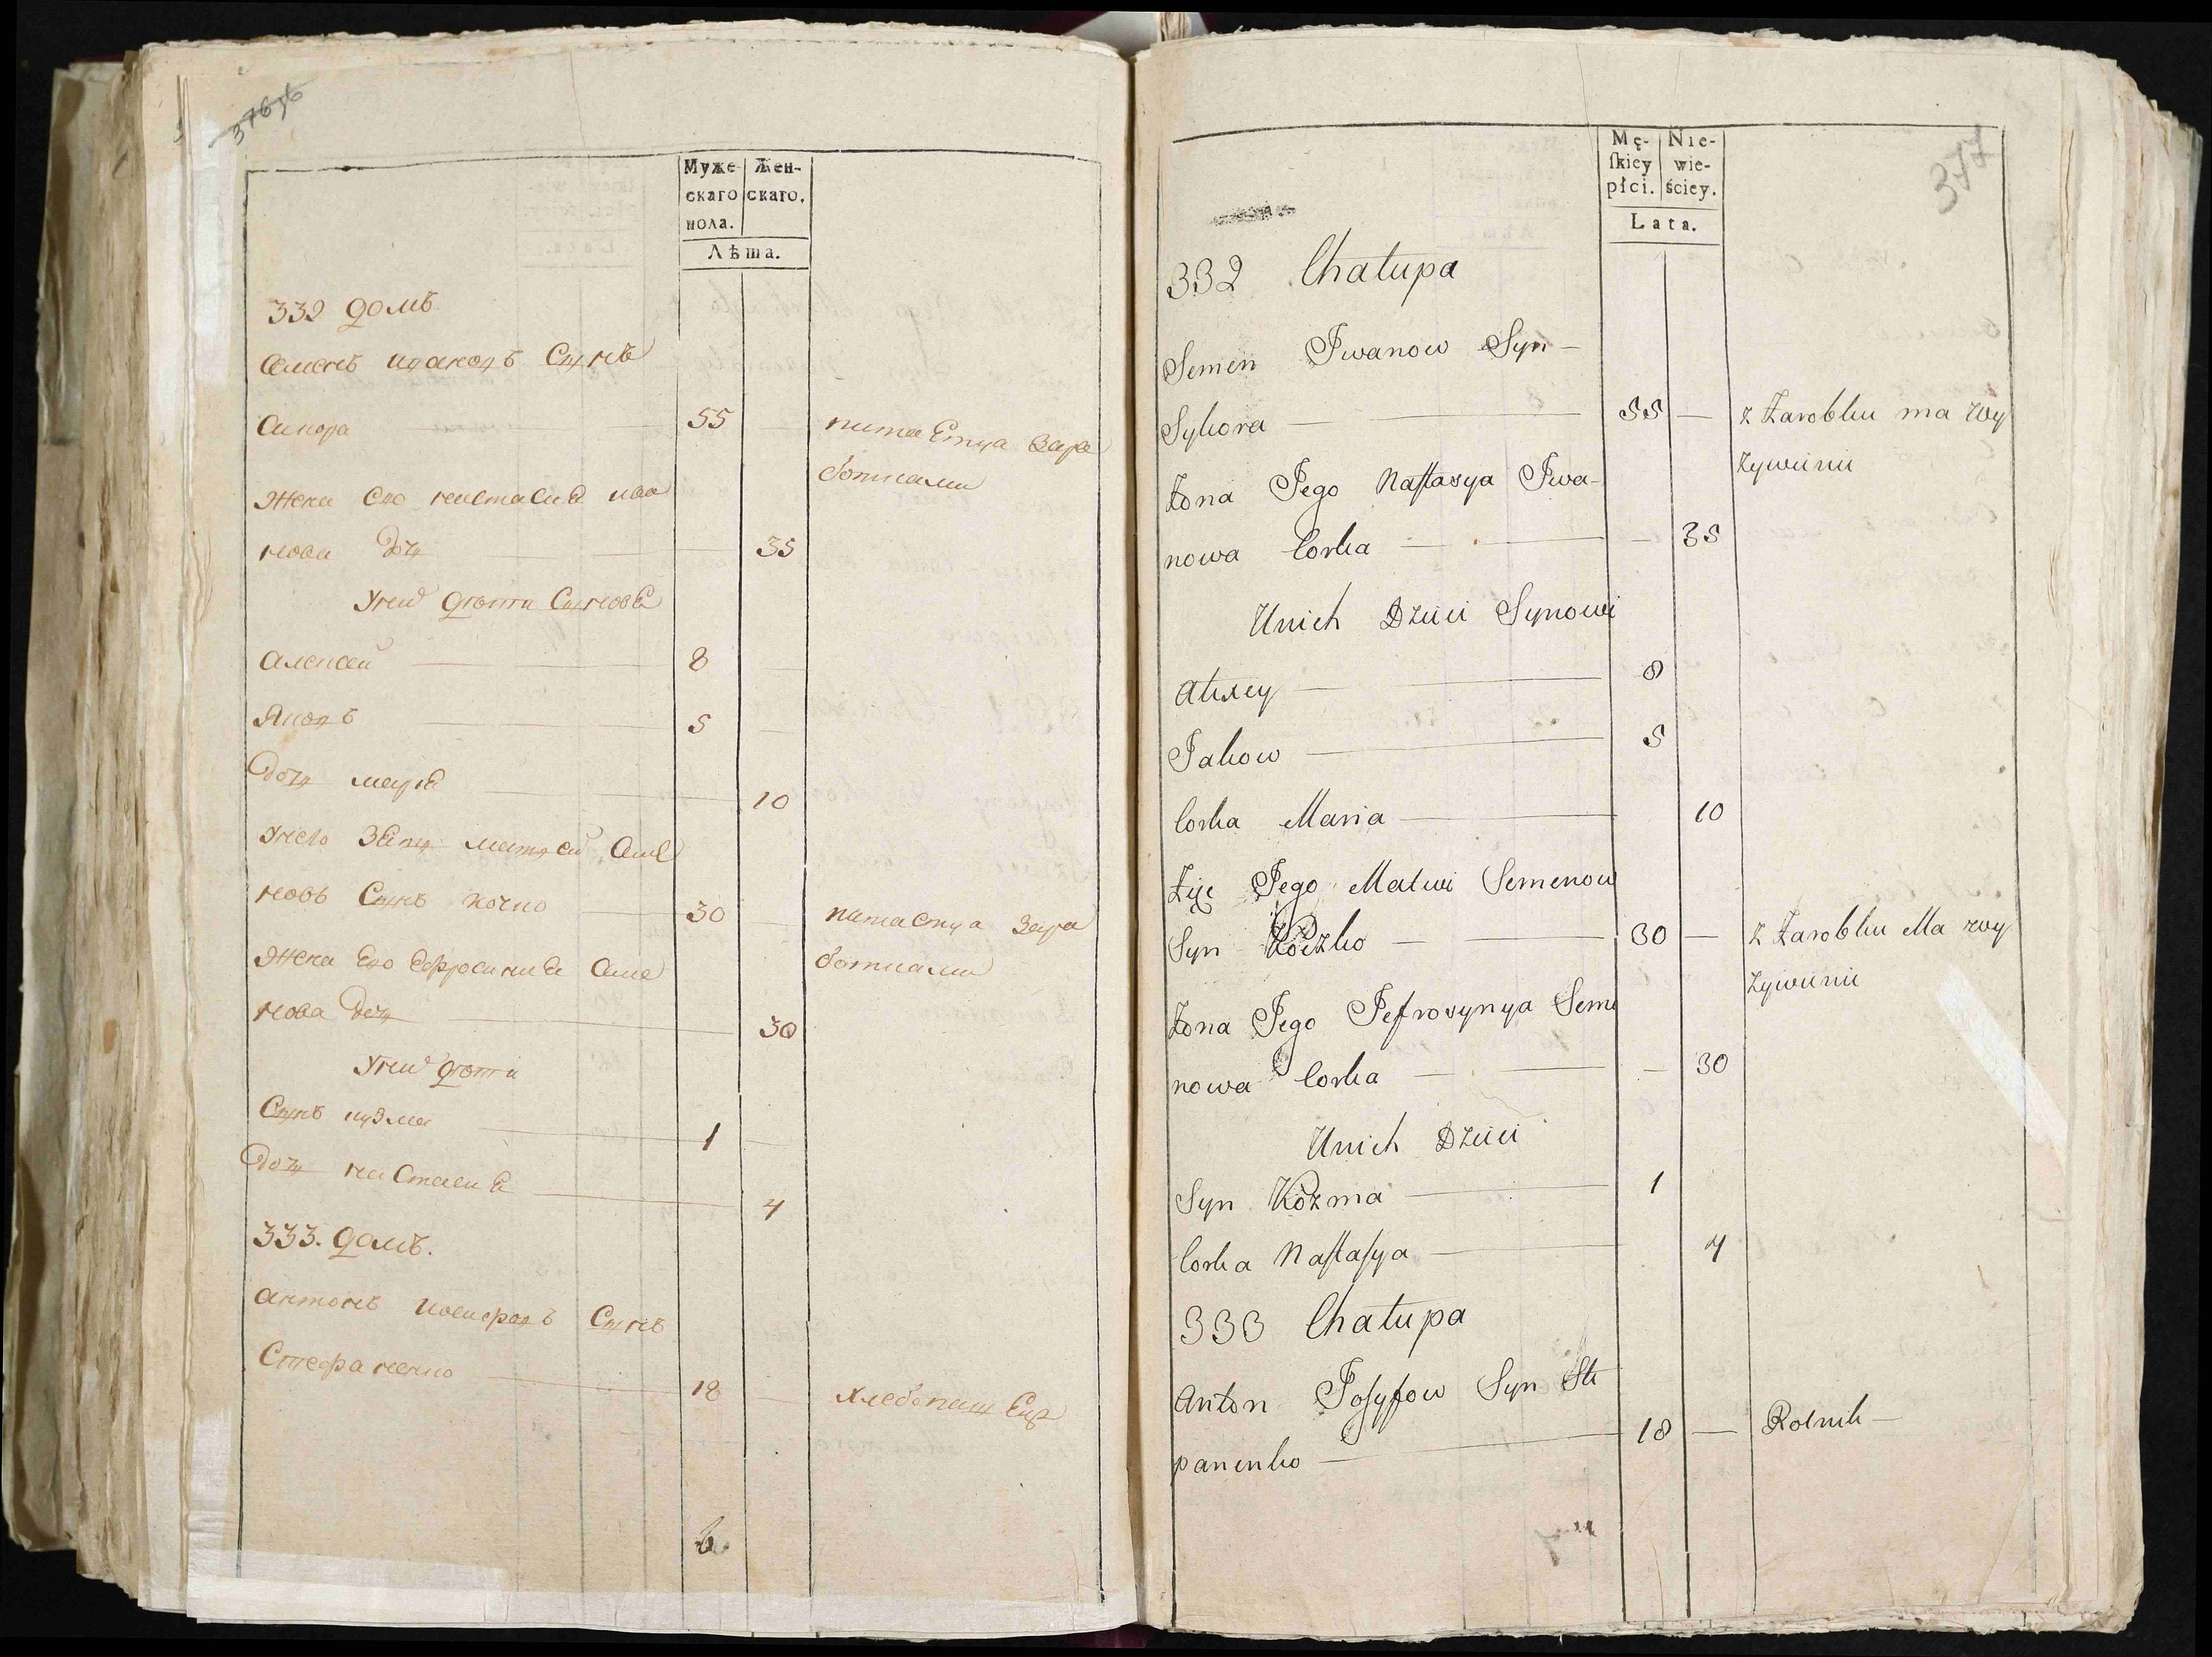 37656
Муже-
скаго
пола.
Жен-
скаго.
Лѣта.
332 домъ
Семенъ ивановъ Сынъ
Сикора 55 питаетца Зара
ботками
Жена его настасия ива
нова дочь 35
У них дѣти Сыновя
алексей 8
Яковъ 5
дочь мария 10
У него Зять матвей Семе
новъ Сынъ кочко 30 питаетца Зара
ботками
Жена Его Ефросиния Семе
нова дочь 30
У них дѣти
Сынъ кузма 1
дочь настасия 4
333. домъ.
антонъ иосифовъ Сынъ
Стефаненко 18 хлебопашец
6
377
Mę-
ſkiey
płci.
Nie-
wie-
ściey.
Lata.
332 Chałupa
Semen Jwanow Syn —
Sykora — 55 — z Zarobku ma wy
żywieniie
Żona Jego Naſtasya Jwa-
nowa Corka — 35
Unich Dzieci Synowi
Alexey — 8
Jakow — 5
Corka Maria — 10
Zięć Jego Matwi Semenow
Syn Koczko — 30 — z Zarobku Ma wy
żywienie
Żona Jego Jefrosynya Seme
nowa Corka — 30
Unich Dzieci
Syn Kozma — 1
Corka Naſtaſya — 4
333 Chałupa
Anton Joſyfow Syn Ste
panenko — 18 — Rolnik —